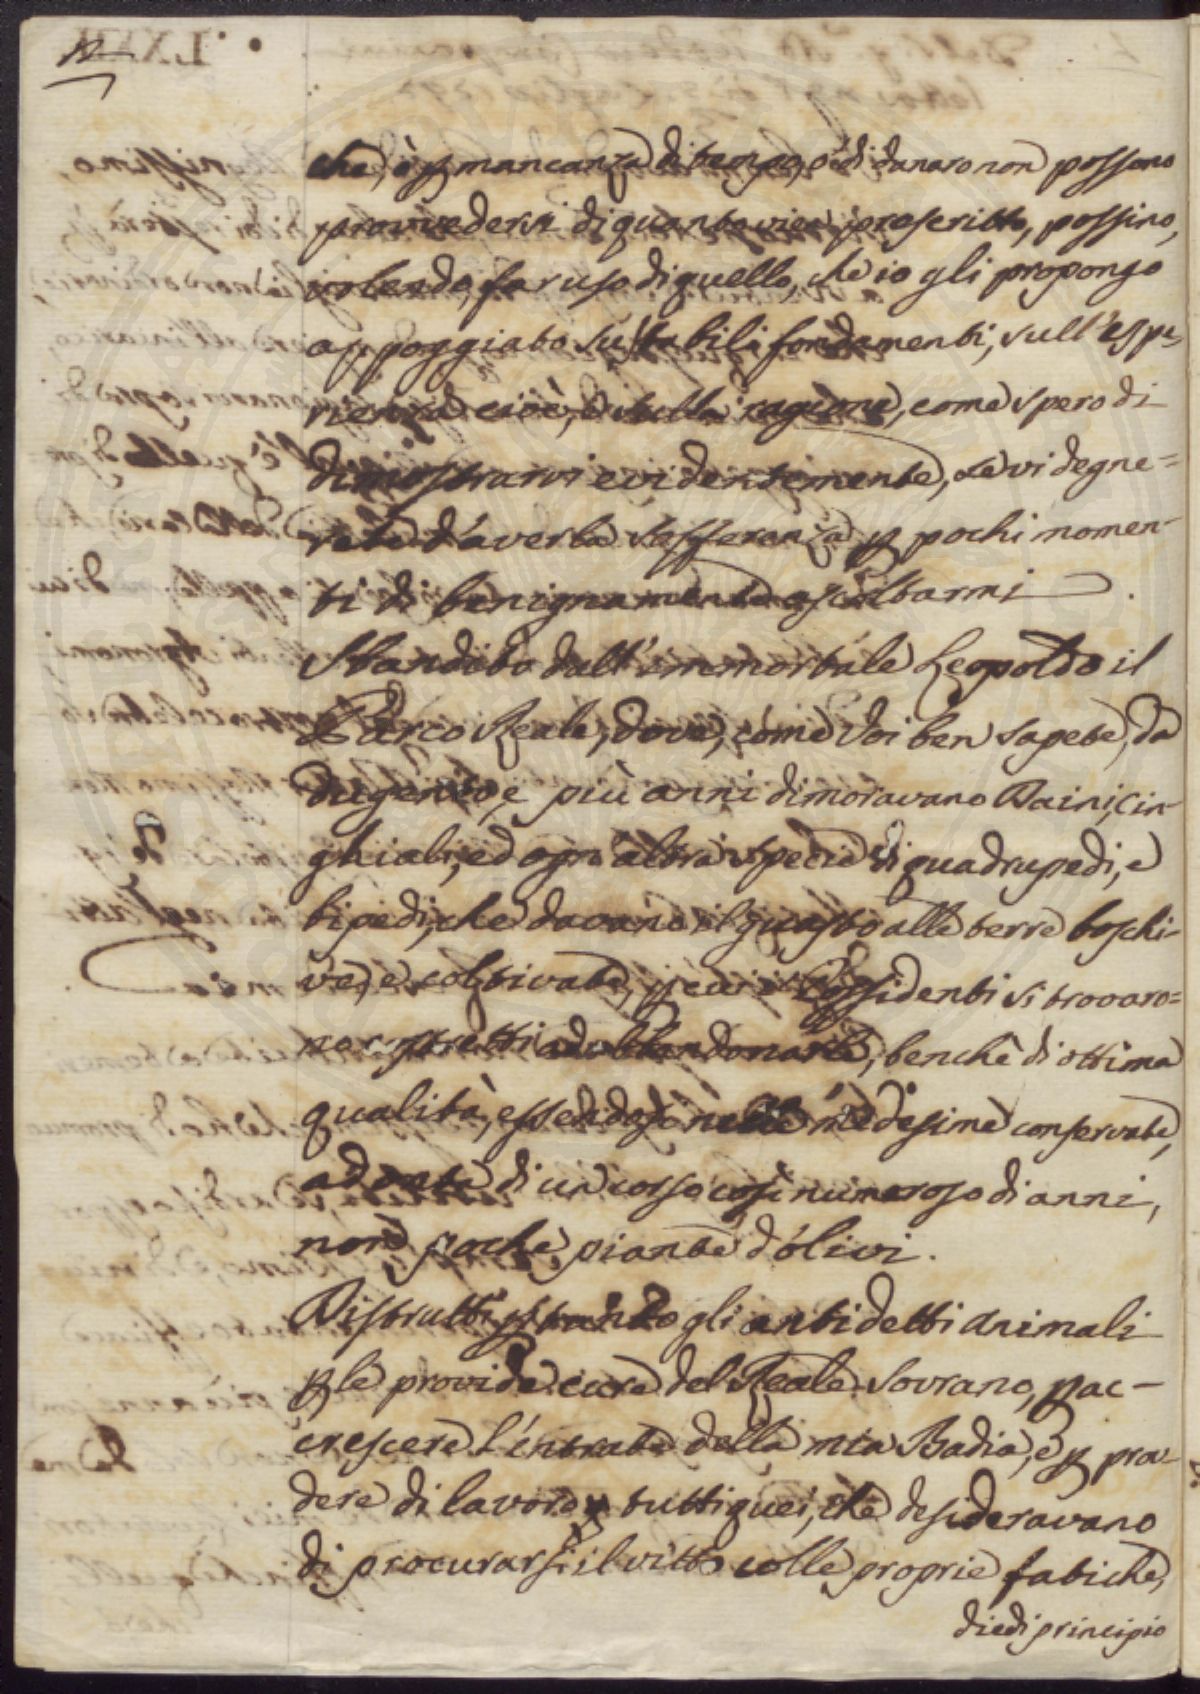 che, ò p mancanza di tempo, ò di danaro non possono
provvedersi di quanto vien prescritto, possino,
volendo, far uso di quello, che io gli propongo
appoggiato su stabili fondamenti, sull'espe=
rienza cioè, e sulla ragione, come spero di
dimostrarvi evidentemente, se vi degne=
rete d'averla sofferenza p pochi momen-
ti di benignamente ascoltarmi.
Sbandito dall'immortale Leopoldo il
Barco Reale, dove, come Voi ben sapete, da
dugento, e più anni dimoravano Daini, cin-
ghiali, ed ogn'altra specie di quadrupedi, e
bipedi, che davano il guasto alle terre boschi-
ve, e coltivate, p cui i Possidenti si trovaro=
no costretti ad abbandonarle, benchè di ottima
qualità, essendosi nelle medesime conservate,
ad onta di un corso così numeroso di anni,
non poche piante d'olivi.
Distrutti p tanto gli antidetti animali
p le provide cure del Reale Sovrano, p ac-
crescere l'entrate della mia Badia, e p pra-
dere di lavoro a tutti quei, che desideravano
di procurarsi il vitto colle proprie fatiche,
diedi principio